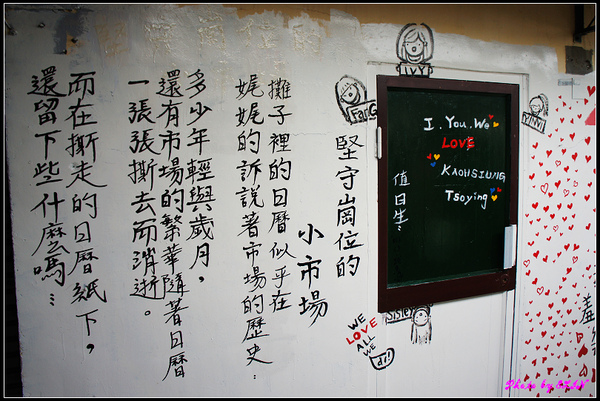 堅守崗位的
小市場
攤子裡的日曆似乎在
娓娓的訴說著市場的歷史…
多少年輕與歲月，
還有市場的繁華隨著日曆
一張張撕去而消逝。
而在撕走的日曆紙下，
還留下些什麼嗎…
IVY
I. You. We
LOVE
KAOHSIUNG
Tsoying
值日生:
Sister
WE
LOVE
ALL
WE
do!
羞
Photo by